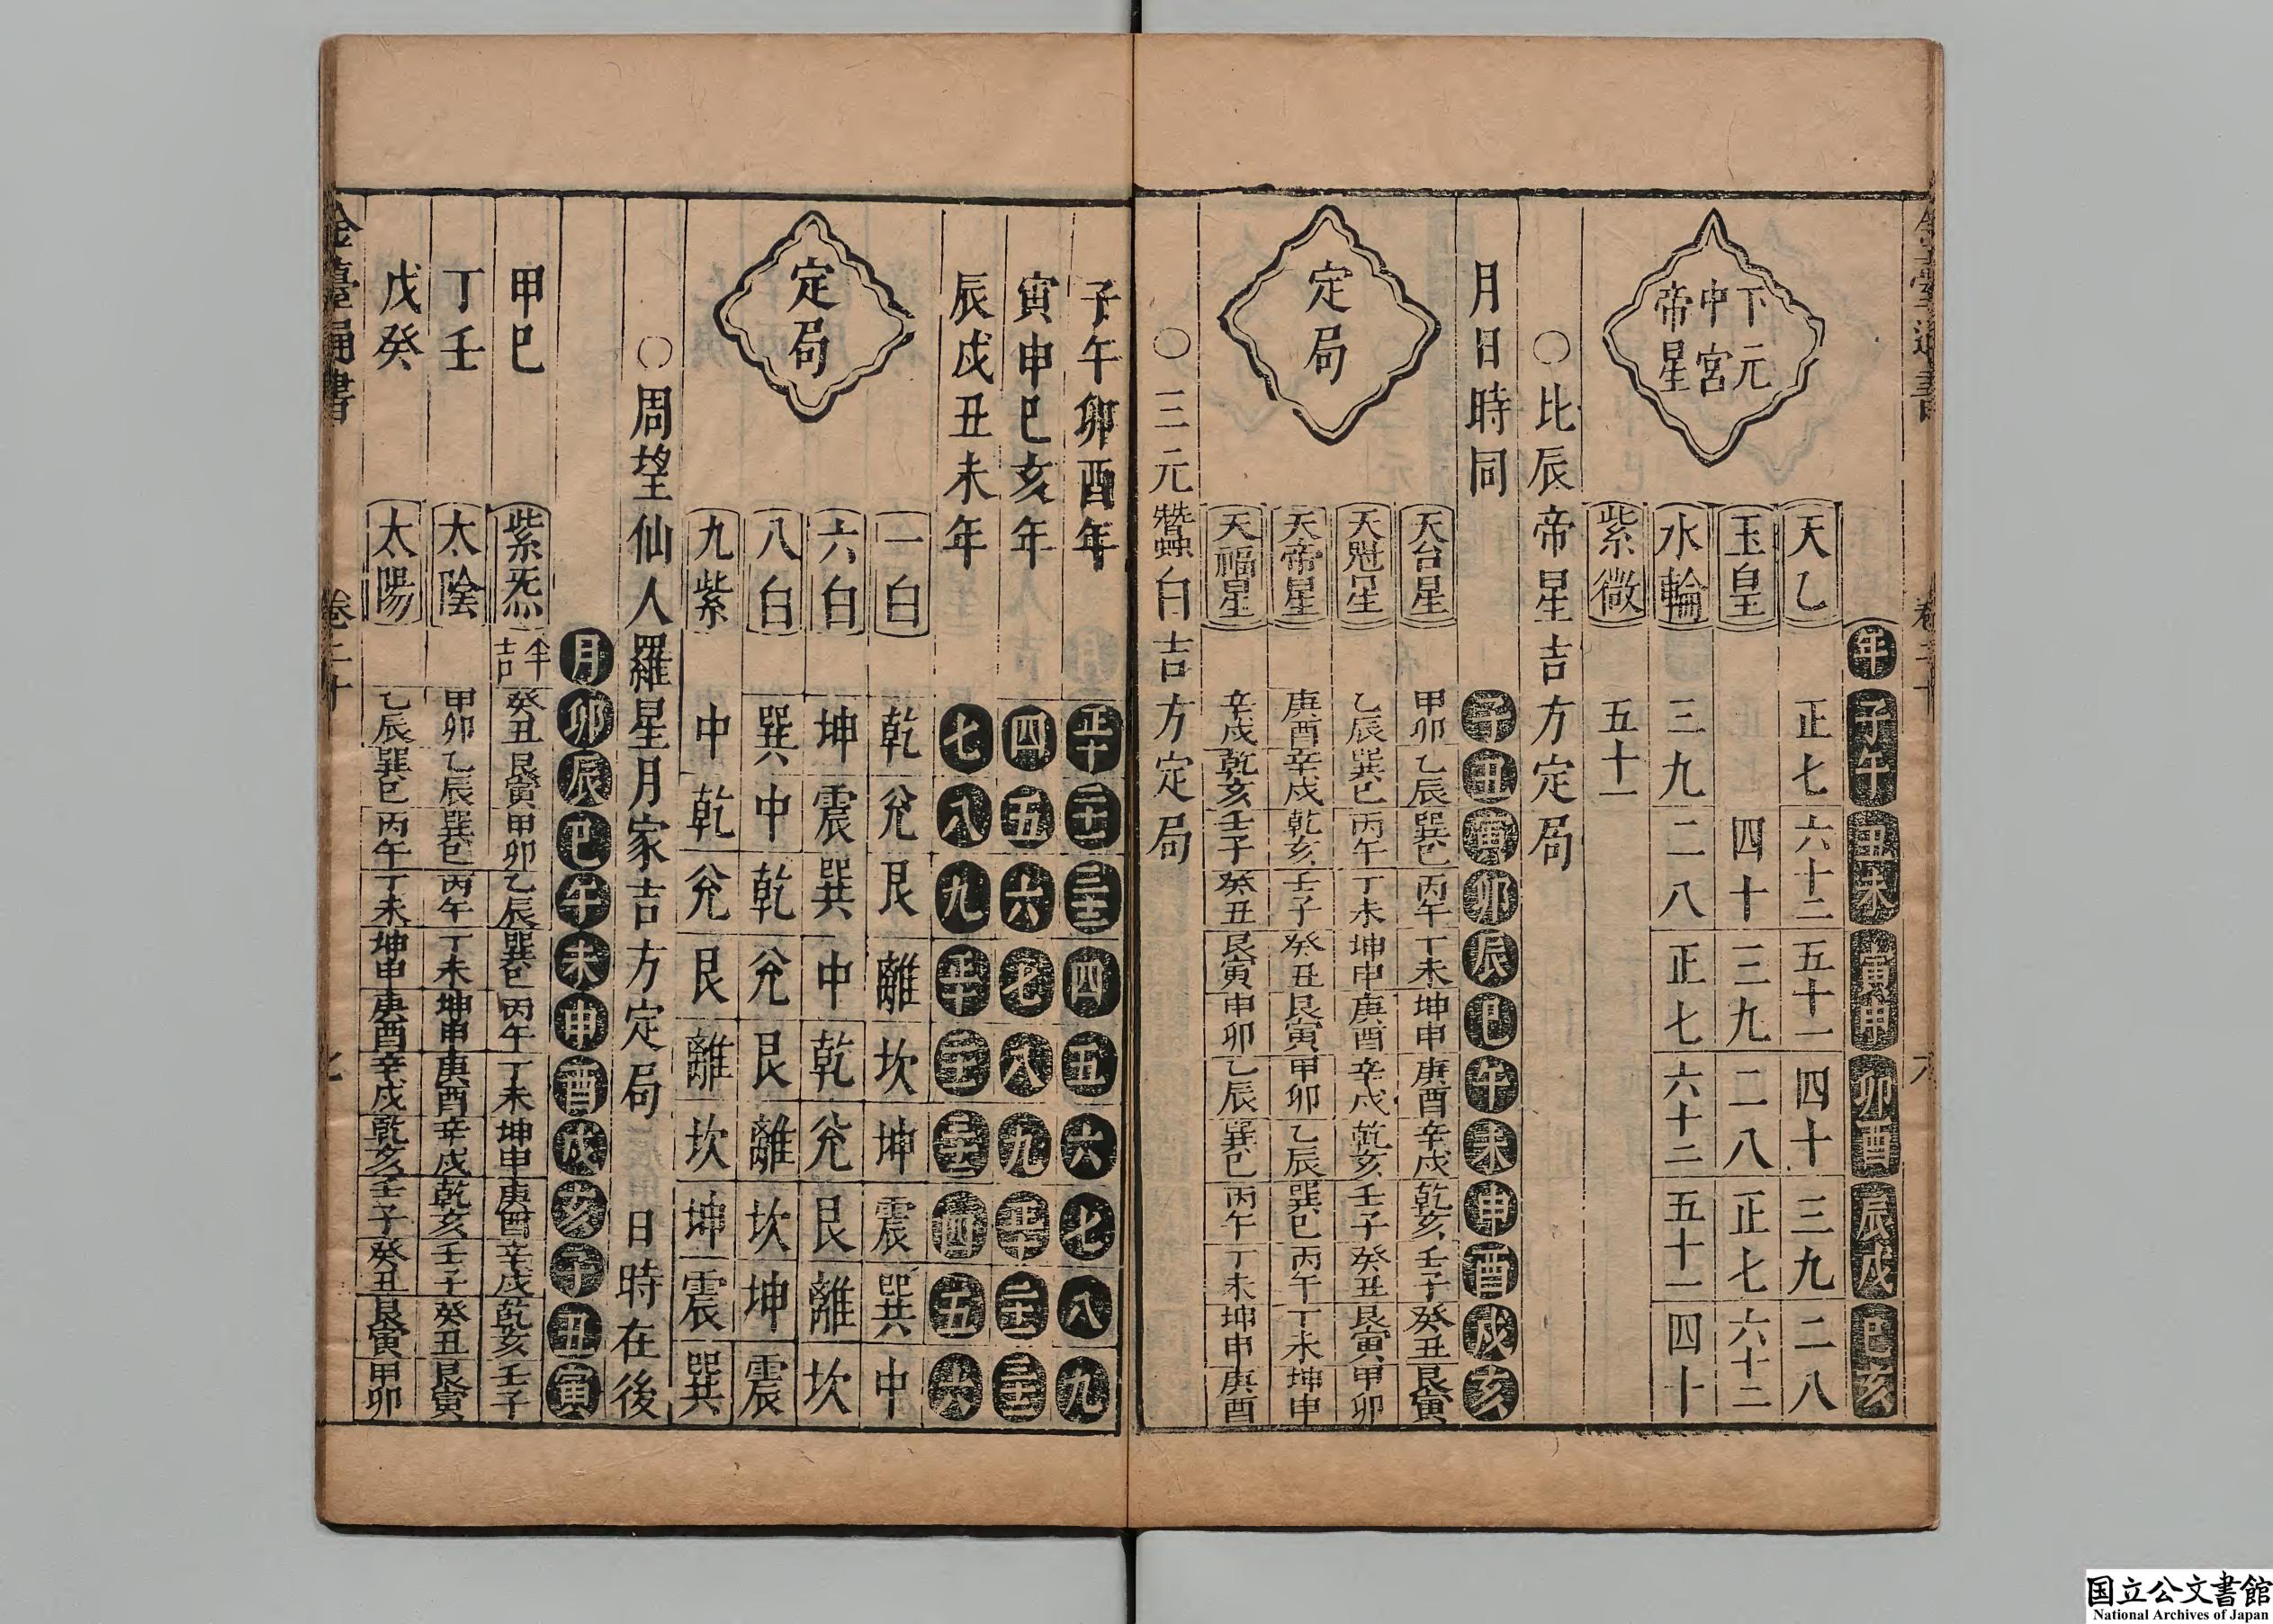 年 子午 丑未 寅申 卯酉 辰戌 巳亥
下元
中宮
帝星
天乙 正七 六十二 五十一 四十 三九 二八
玉皇 四十 三九 二八 正七 六十二
水輪 三九 二八 正七 六十二 五十一 四十
紫微 五十一
○比辰帝星吉方定局
月日時同 子 丑 寅 卯 辰 巳 午 未 申 酉 戌 亥
定局
天台星 甲卯 乙辰 巽巳 丙午 丁未 坤申 庚酉 辛戌 乾亥 壬子 癸丑 艮寅
天冠星 乙辰 巽巳 丙午 丁未 坤申 庚酉 辛戌 乾亥 壬子 癸丑 艮寅 甲卯
天帝星 庚酉 辛戌 乾亥 壬子 癸丑 艮寅 甲卯 乙辰 巽巳 丙午 丁未 坤申
天福星 辛戌 乾亥 壬子 癸丑 艮寅 申卯 乙辰 巽巳 丙午 丁未 坤申 庚酉
○三元蠶白吉方定局
子午卯酉年 正十 二十一 三十二 四 五 六 七 八 九
寅申巳亥年 四 五 六 七 八 九
辰戌丑未年 七 八 九
定局
一白 乾 兊 艮 離 坎 坤 震 巽 中
六白 坤 震 巽 中 乾 兊 艮 離 坎
八白 巽 中 乾 兊 艮 離 坎 坤 震
九紫 中 乾 兊 艮 離 坎 坤 震 巽
○周望仙人羅星月家吉方定局 日時在後
月 卯 辰 巳 午 未 申 酉 戌 亥 子 丑 寅
甲巳 紫炁 吉 癸丑 艮寅 甲卯 乙辰 巽巳 丙午 丁未 坤申 庚酉 辛戌 乾亥 壬子
丁壬 太陰 甲卯 乙辰 巽巳 丙午 丁未 坤申 庚酉 辛戌 乾亥 壬子 癸丑 艮寅
戊癸 太陽 乙辰 巽巳 丙午 丁未 坤申 庚酉 辛戌 乾亥 壬子 癸丑 艮寅 甲卯
金臺通書 卷二十
国立公文書館
National Archives of Japan